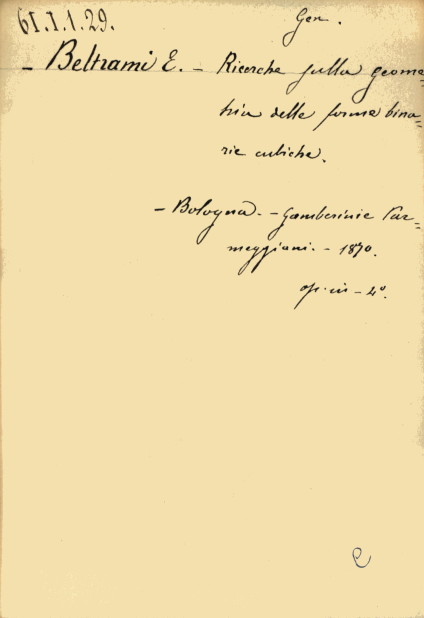 61.I.1.29.
Gen.
- Beltrami E. - Ricerche sulla geome=
tria delle forme bina=
rie cubiche.
- Bologna. - Gamberinie Par=
meggiani. - 1870.
op. in - 4°.